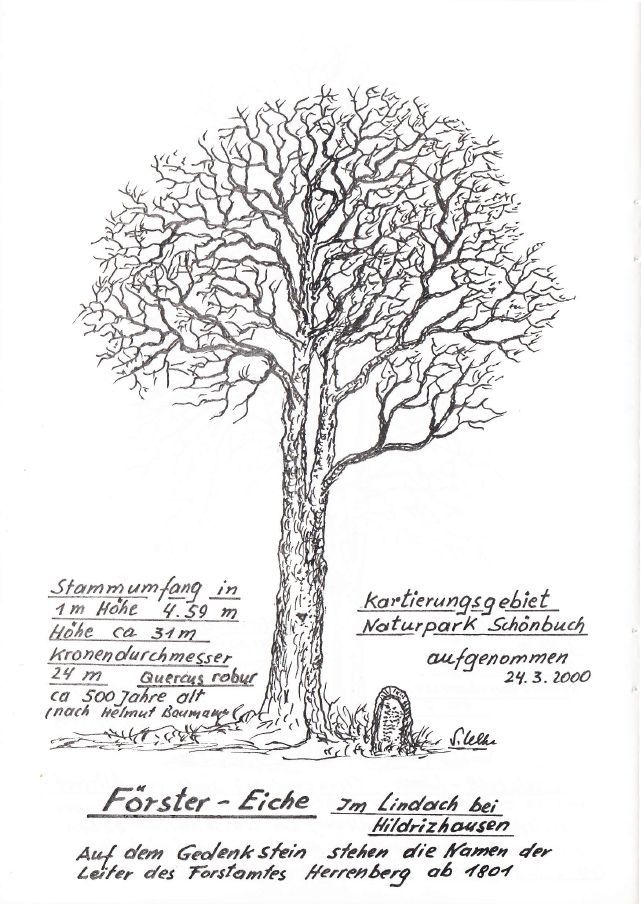 Stammumfang in
1 m Höhe 4.59 m
Höhe ca 31 m
Kronendurchmesser
24 m Quercus robur
ca 500 Jahre alt
(nach Helmut Baumann)
Kartierungsgebiet
Naturpark Schönbuch
aufgenommen
24.3.2000
Förster-Eiche Im Lindach bei
Hildrizhausen
Auf dem Gedenkstein stehen die Namen der
Leiter des Forstamtes Herrenberg ab 1801